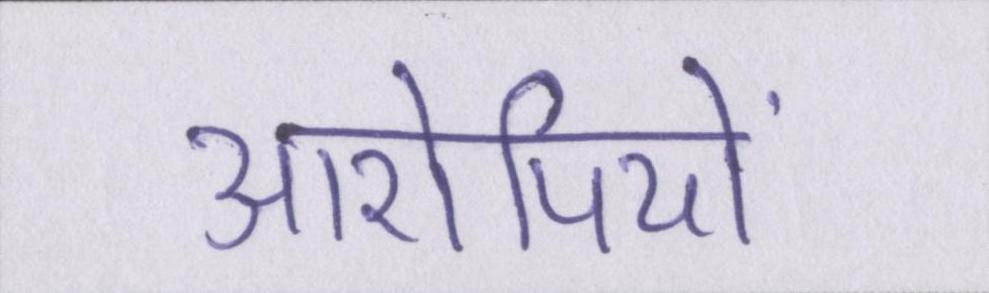 आरोपियों